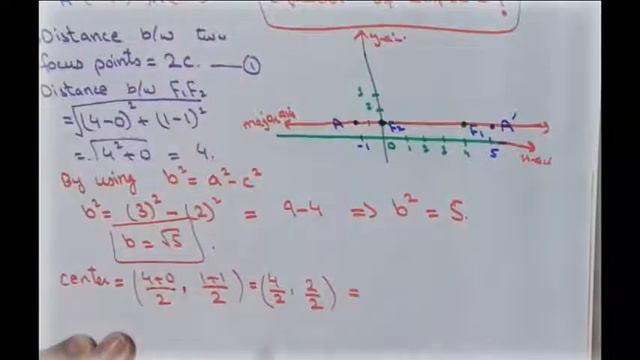 Distance b/w two
focus points = 2c. — ①
Distance b/w F₁F₂
= √(4-0)² + (1-1)²
= √4²+0 = 4.
By using b² = a² - c²
b² = (3)² - (2)² = 9-4 => b² = 5.
b = √5
center = (4+0/2, 1+1/2) = (4/2, 2/2) =
major axis A F₂ F₁ A'
-1 0 1 2 3 4 5